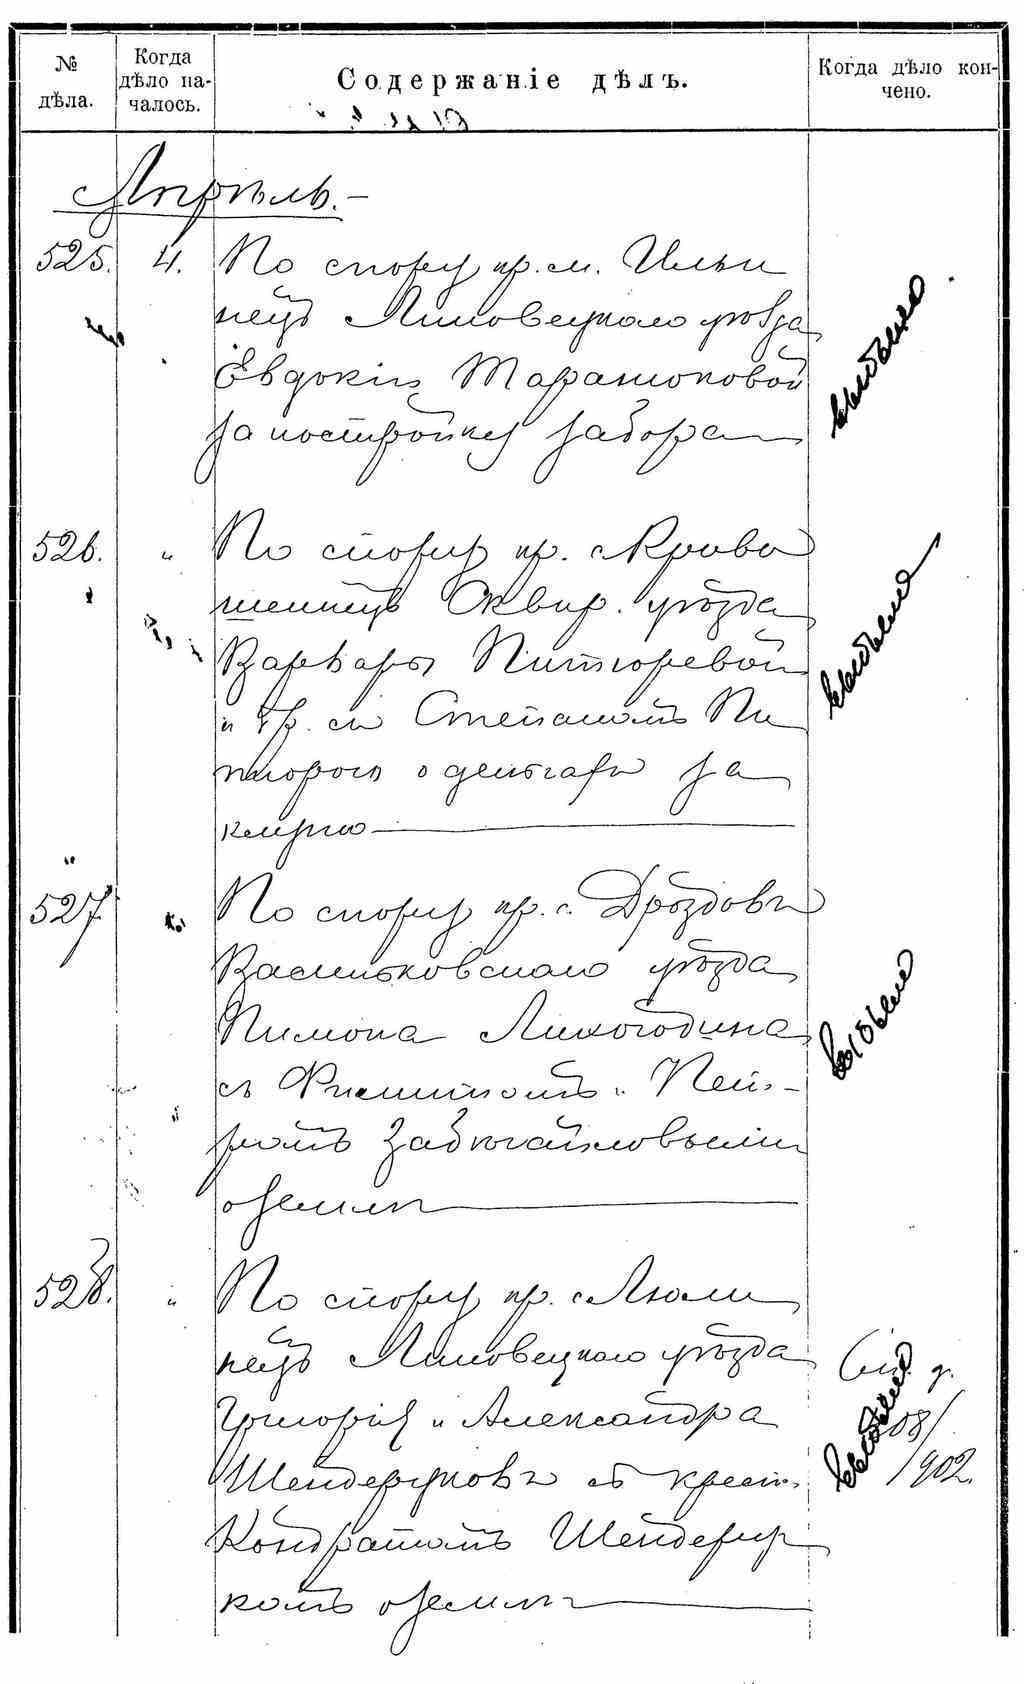 № дѣла.
Когда дѣло на-
чалось.
Содержаніе дѣлъ.
Когда дѣло кон-
чено.
Апрѣль.-
525. 4. По спору кр. м. Ильи
нецъ Липовецкаго уѣзда
Евдокіи Таранюковой
за постройку забора
выбыло
526. " По спору кр. с. Криво
шеинецъ Сквир. уѣзда
Варвары Питюревой
и др. съ Степаномъ Пи
о деньгахъ за
выбыло
527 По спору кр. с. Дроздовъ
Васильковскаго уѣзда
Пимона Лихогодина
съ Филиппомъ и Пет-
ромъ
о земли
выбыло
528. " По спору кр. с. Люли
нецъ Липовецкаго уѣзда
Григорія и Александра
Шендеруковъ съ крест.
Кондратомъ Шендеру
комъ о земли
выбыло
д.
508/
902.